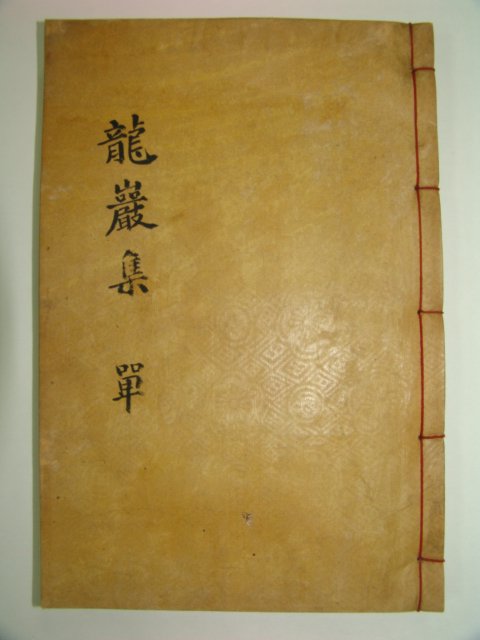 龍巖集 單